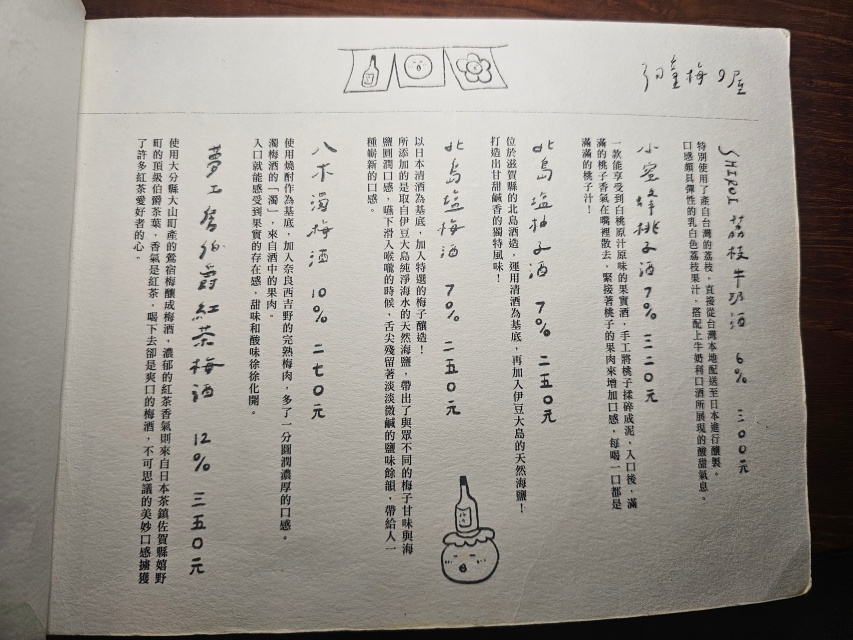 梅
屋
荔枝牛奶酒 6% 三〇〇元
特別使用了產自台灣的荔枝，直接從台灣本地配送至日本進行釀製。
口感頗具彈性的乳白色荔枝果汁，搭配上牛奶利口酒所展現的酸甜氣息。
小蜜蜂桃子酒 7% 三二〇元
一款能享受到白桃原汁原味的果實酒，手工將桃子揉碎成泥，入口後，滿
滿的桃子香氣在嘴裡散去，緊接著桃子的果肉來增加口感，每喝一口都是
滿滿的桃子汁！
北島塩柚子酒 7% 二五〇元
位於滋賀縣的北島酒造，運用清酒為基底，再加入伊豆大島的天然海鹽！
打造出甘甜鹹香的獨特風味！
北島塩梅酒 7% 二五〇元
以日本清酒為基底，加入特選的梅子釀造！
所添加的是取自伊豆大島純淨海水的天然海鹽，帶出了與眾不同的梅子甘味與海
鹽圓潤口感，嚥下滑入喉嚨的時候，舌尖殘留著淡淡微鹹的鹽味餘韻，帶給人一
種嶄新的口感。
八木濁梅酒 10% 二七〇元
使用燒酎作為基底，加入奈良西吉野的完熟梅肉，多了一分圓潤濃厚的口感。
濁梅酒的「濁」，來自酒中的果肉。
入口就能感受到果實的存在感，甜味和酸味徐徐化開。
夢工房伯爵紅茶梅酒 12% 三五〇元
使用大分縣大山町產的鶯宿梅釀成梅酒，濃郁的紅茶香氣則來自日本茶鎮佐賀縣嬉野
町的頂級伯爵茶葉，香氣是紅茶，喝下去卻是爽口的梅酒，不可思議的美妙口感擄獲
了許多紅茶愛好者的心。